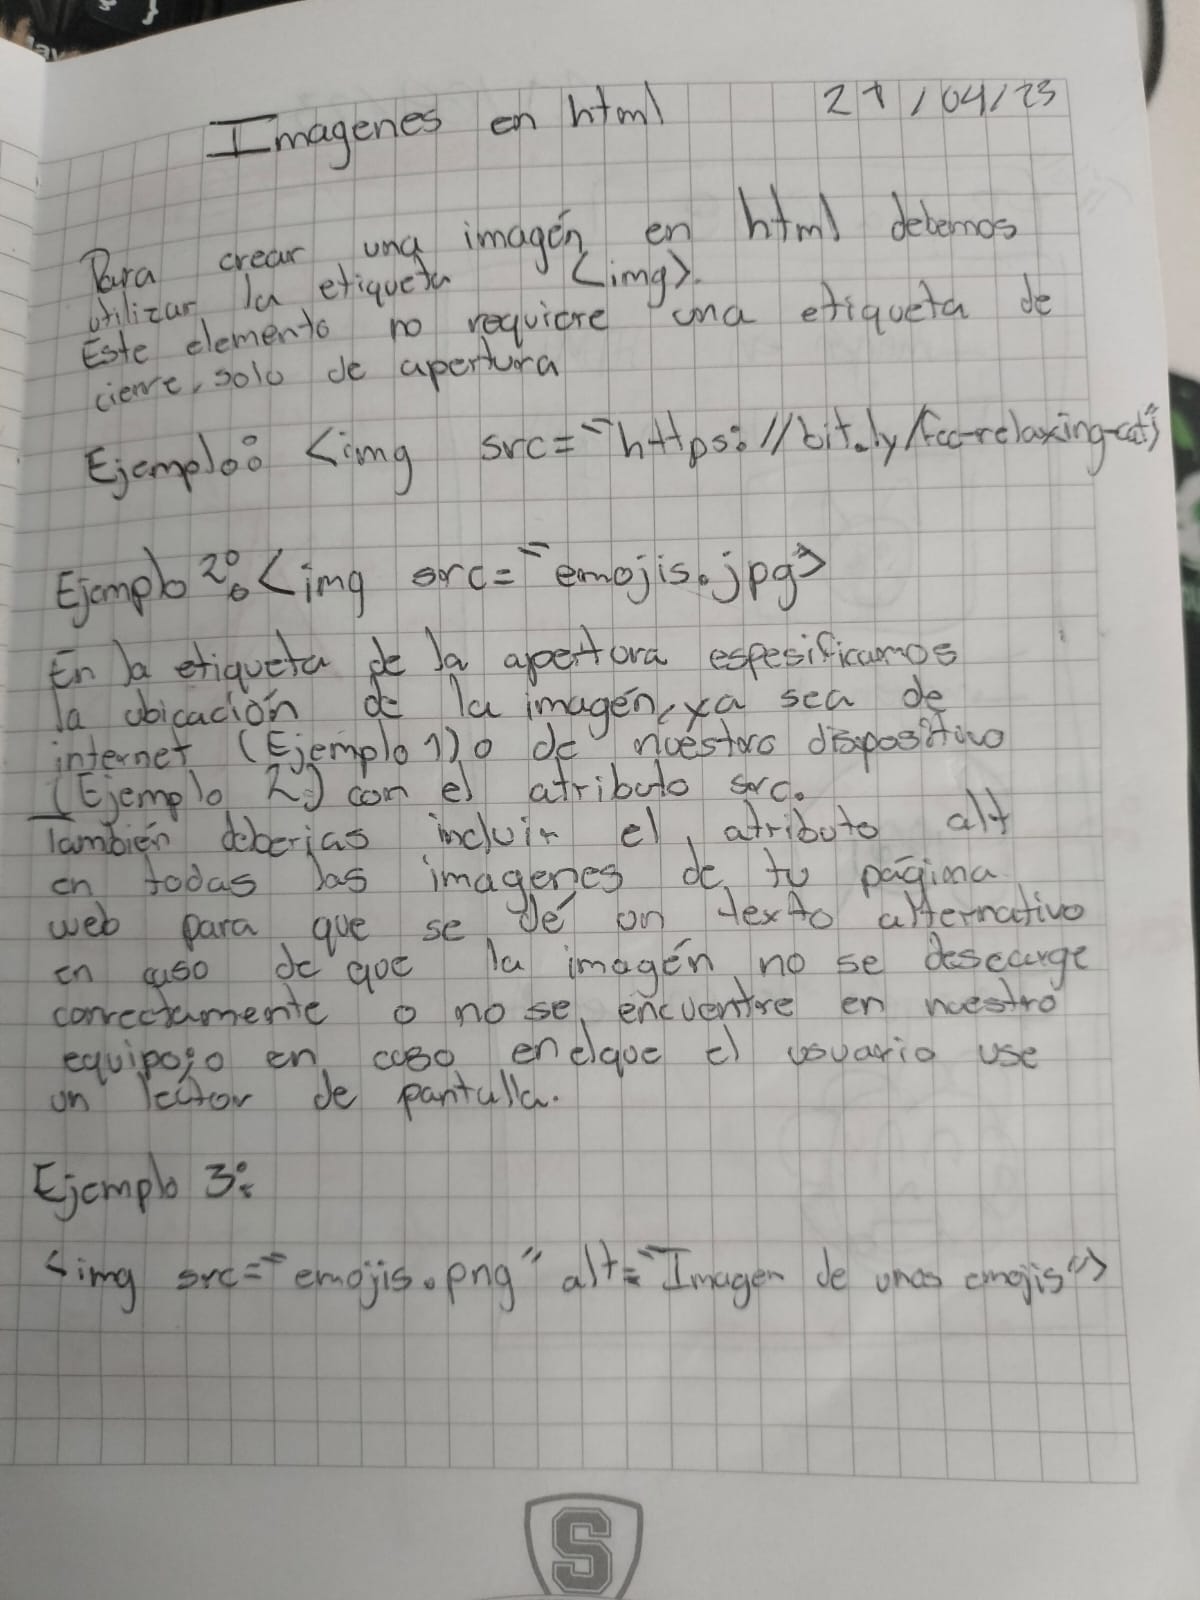 Imagenes en html 27/04/23
Para crear una imagén en html debemos
utilizar la etiqueta <img>.
Este elemento no requiere una etiqueta de
cierre, solo de apertura
Ejemplo: <img src="https://bit.ly/fcc-relaxing-cat">
Ejemplo 2: <img src="emojis.jpg>
En la etiqueta de la apertura espesificamos
la ubicación de la imagén, ya sea de
internet (Ejemplo 1) o de nuestro dispositivo
(Ejemplo 2) con el atributo src.
También deberias incluir el atributo alt
en todas las imagenes de tu página
web para que se dé un texto alternativo
en caso de que la imagén no se descarge
correctamente o no se encuentre en nuestro
equipo; o en caso en elque el usuario use
un lector de pantalla.
Ejemplo 3:
<img src="emojis.png" alt="Imagen de unos emojis">
S